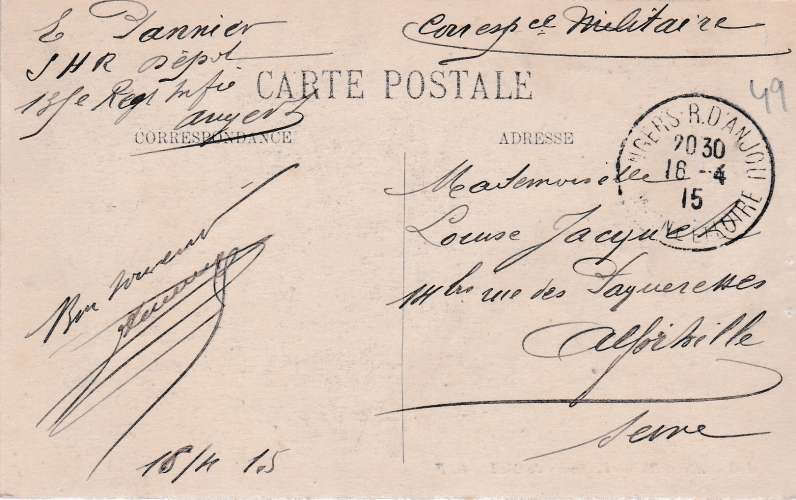 E Pannier
SHR Dépôt
135e Regt Infie
Angers
Correspce Militaire
CARTE POSTALE
49
CORRESPONDANCE
ADRESSE
ANGERS-R.D'ANJOU
2030
16 -4
15
NE ET LOIRE
Mademoiselle
Louise Jacques
14 bis rue des Paquerettes
Alfortville
Seine
Bon souvenir
18/4 15